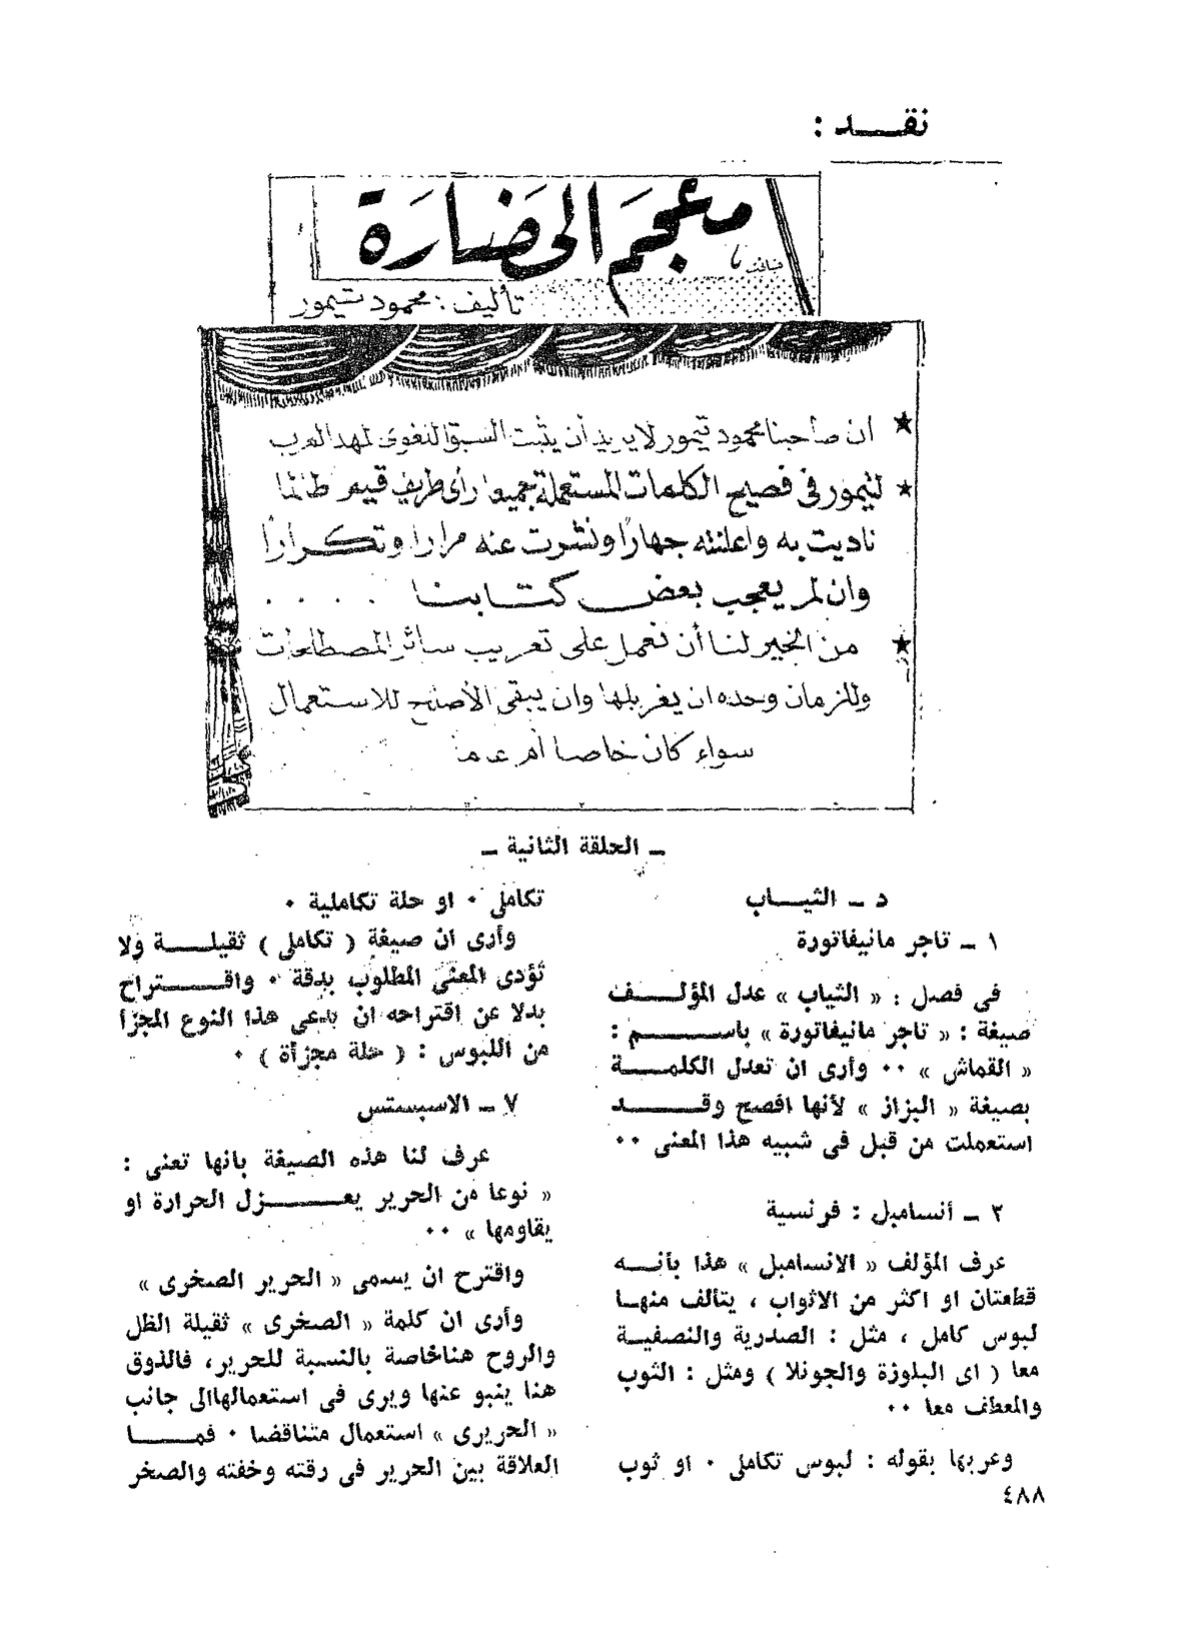 نقـــد :
معجم الحضارة
تأليف : محمود تيمور
★ ان صاحبنا محمود تيمور لا يريد أن يثبت السبق اللغوى لمهد العرب
★ لتيمور فى فصيح الكلمات المستعملة جميعا رأى طريف قيم طالما
ناديت به واعلنته جهارا ونشرت عنه مرارا وتكرارا
وان لم يعجب بعض كتابنا . . . .
★ من الخير لنا أن نعمل على تعريب سائر المصطلحات
وللزمان وحده ان يغربلها وان يبقى الأصلح للاستعمال
سواء كان خاصا أم عاما
ـ الحلقة الثانية ـ
د ـ الثيـــاب
١ ـ تاجر مانيفاتورة
فى فصل : « الثياب » عدل المؤلــف
صيغة : « تاجر مانيفاتورة » باســـم :
« القماش » ٠٠ وأرى ان تعدل الكلمـــة
بصيغة « البزاز » لأنها افصح وقـــد
استعملت من قبل فى شبيه هذا المعنى ٠٠
٢ ـ أنسامبل : فرنسية
عرف المؤلف « الانسامبل » هذا بأنـــه
قطعتان او اكثر من الاثواب ، يتألف منهـا
لبوس كامل ، مثل : الصدرية والنصفيـة
معا ( اى البلوزة والجونلا ) ومثل : الثوب
والمعطف معا ٠٠
وعربها بقوله : لبوس تكاملى ٠ او ثوب
تكاملى ٠ او حلة تكاملية ٠
وأرى ان صيغة ( تكاملى ) ثقيلـــة ولا
تؤدى المعنى المطلوب بدقة ٠ واقـــتراح
بدلا عن اقتراحه ان يدعى هذا النوع المجزأ
من اللبوس : ( حلة مجزأة ) ٠
٧ ـ الاسبستس
عرف لنا هذه الصيغة بانها تعنى :
« نوعا من الحرير يعـــــزل الحرارة او
يقاومها » ٠٠
واقترح ان يسمى « الحرير الصخرى »
وأرى ان كلمة « الصخرى » ثقيلة الظل
والروح هناخاصة بالنسبة للحرير، فالذوق
هنا ينبو عنها ويرى فى استعمالهاالى جانب
« الحريرى » استعمال متناقضا ٠ فمـــا
العلاقة بين الحرير فى رقته وخفته والصخر
٤٨٨